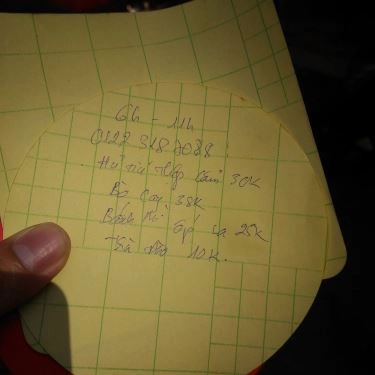 6h - 11h
0127 318 7088
Hủ tiếu thập cẩm 30K
Bò cay 38K
Bánh mì ốp la 25K
Trà đào 10K.